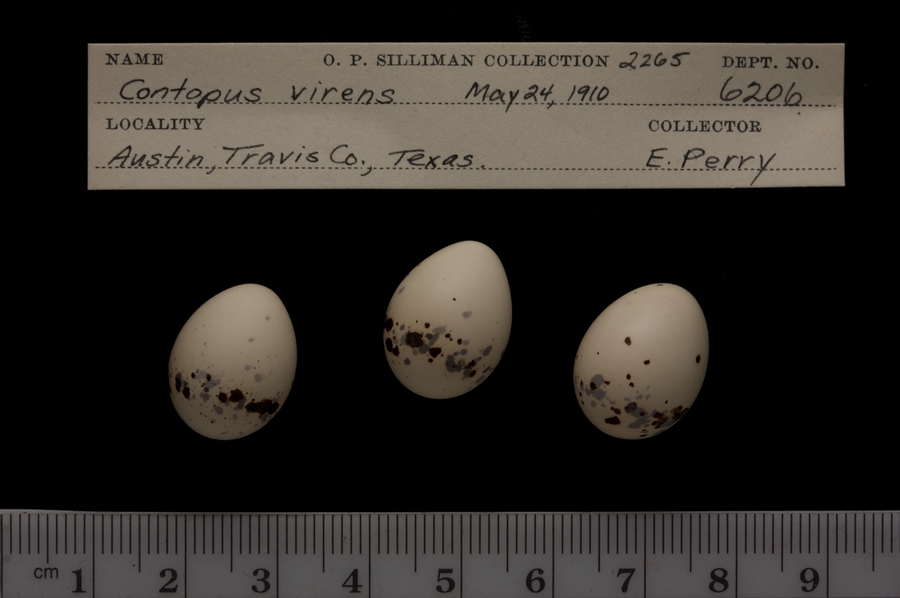 NAME O. P. SILLIMAN COLLECTION 2265 DEPT. NO.
Contopus virens May 24, 1910 6206
LOCALITY COLLECTOR
Austin, Travis Co., Texas. E. Perry
cm 1 2 3 4 5 6 7 8 9